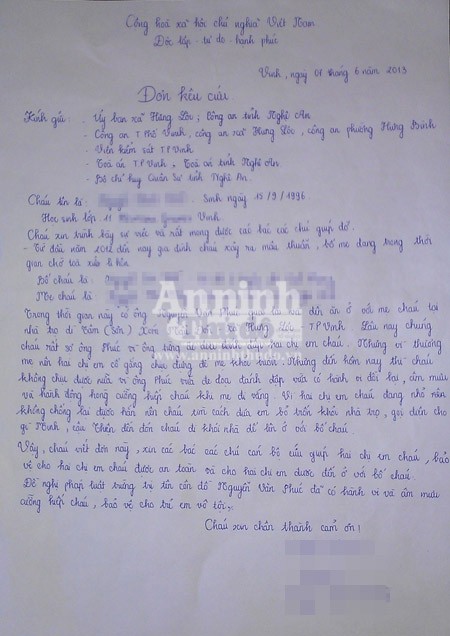 Cộng hoà xã hội chủ nghĩa Việt Nam
Độc lập - tự do - hạnh phúc
Vinh, ngày 01 tháng 6 năm 2013
Đơn kêu cứu
Kính gửi: - Uỷ ban xã Hưng Lộc; Công an tỉnh Nghệ An
- Công an T.Phố Vinh, công an xã Hưng Lộc, công an phường Hưng Bình
- Viện kiểm sát T.P Vinh
- Toà án T.P Vinh, Toà án tỉnh Nghệ An
- Bộ chỉ huy Quân Sự tỉnh Nghệ An
Cháu tên là: Sinh ngày 15/9/1996.
Học sinh lớp 11 Vinh.
Cháu xin trình bày sự việc và rất mong được các bác các chú giúp đỡ.
- Từ đầu năm 2012 đến nay gia đình cháu xảy ra mâu thuẫn, bố mẹ đang trong thời
gian chờ toà xử li hôn.
Bố cháu là:
Mẹ cháu là:
Trong thời gian này có ông Nguyễn Văn Phúc đến ăn ở với mẹ cháu tại
nhà trọ dì Tâm (Sơn) Xóm Mẫu Đơn xã Hưng Lộc T.P Vinh. Lâu nay chúng
cháu rất sợ ông Phúc vì ông từng đe doạ đánh đập hai chị em cháu. Nhưng vì thương
mẹ nên hai chị em cố gắng chịu đựng để mẹ khỏi buồn. Nhưng đến hôm nay thì cháu
không chịu được nữa vì ông Phúc vừa đe doạ đánh đập vừa có hành vi đồi bại, âm mưu
và hành động hòng cưỡng hiếp cháu khi mẹ đi vắng. Vì hai chị em cháu đang nhỏ nên
không chống lại được hắn nên cháu tìm cách đưa em bỏ trốn khỏi nhà trọ, gọi điện cho
dì Minh, cậu Thiên đến đón cháu đi khỏi nhà để lên ở với bố cháu.
Vậy, cháu viết đơn này, xin các bác các chú cán bộ cứu giúp hai chị em cháu, bảo
vệ cho hai chị em cháu được an toàn và cho hai chị em được đến ở với bố cháu.
Đề nghị pháp luật trừng trị tên côn đồ Nguyễn Văn Phúc đã có hành vi và âm mưu
cưỡng hiếp cháu, bảo vệ cho trẻ em vô tội.
Cháu xin chân thành cám ơn!
Anninh
Thủ đô
www.anninhthudo.vn